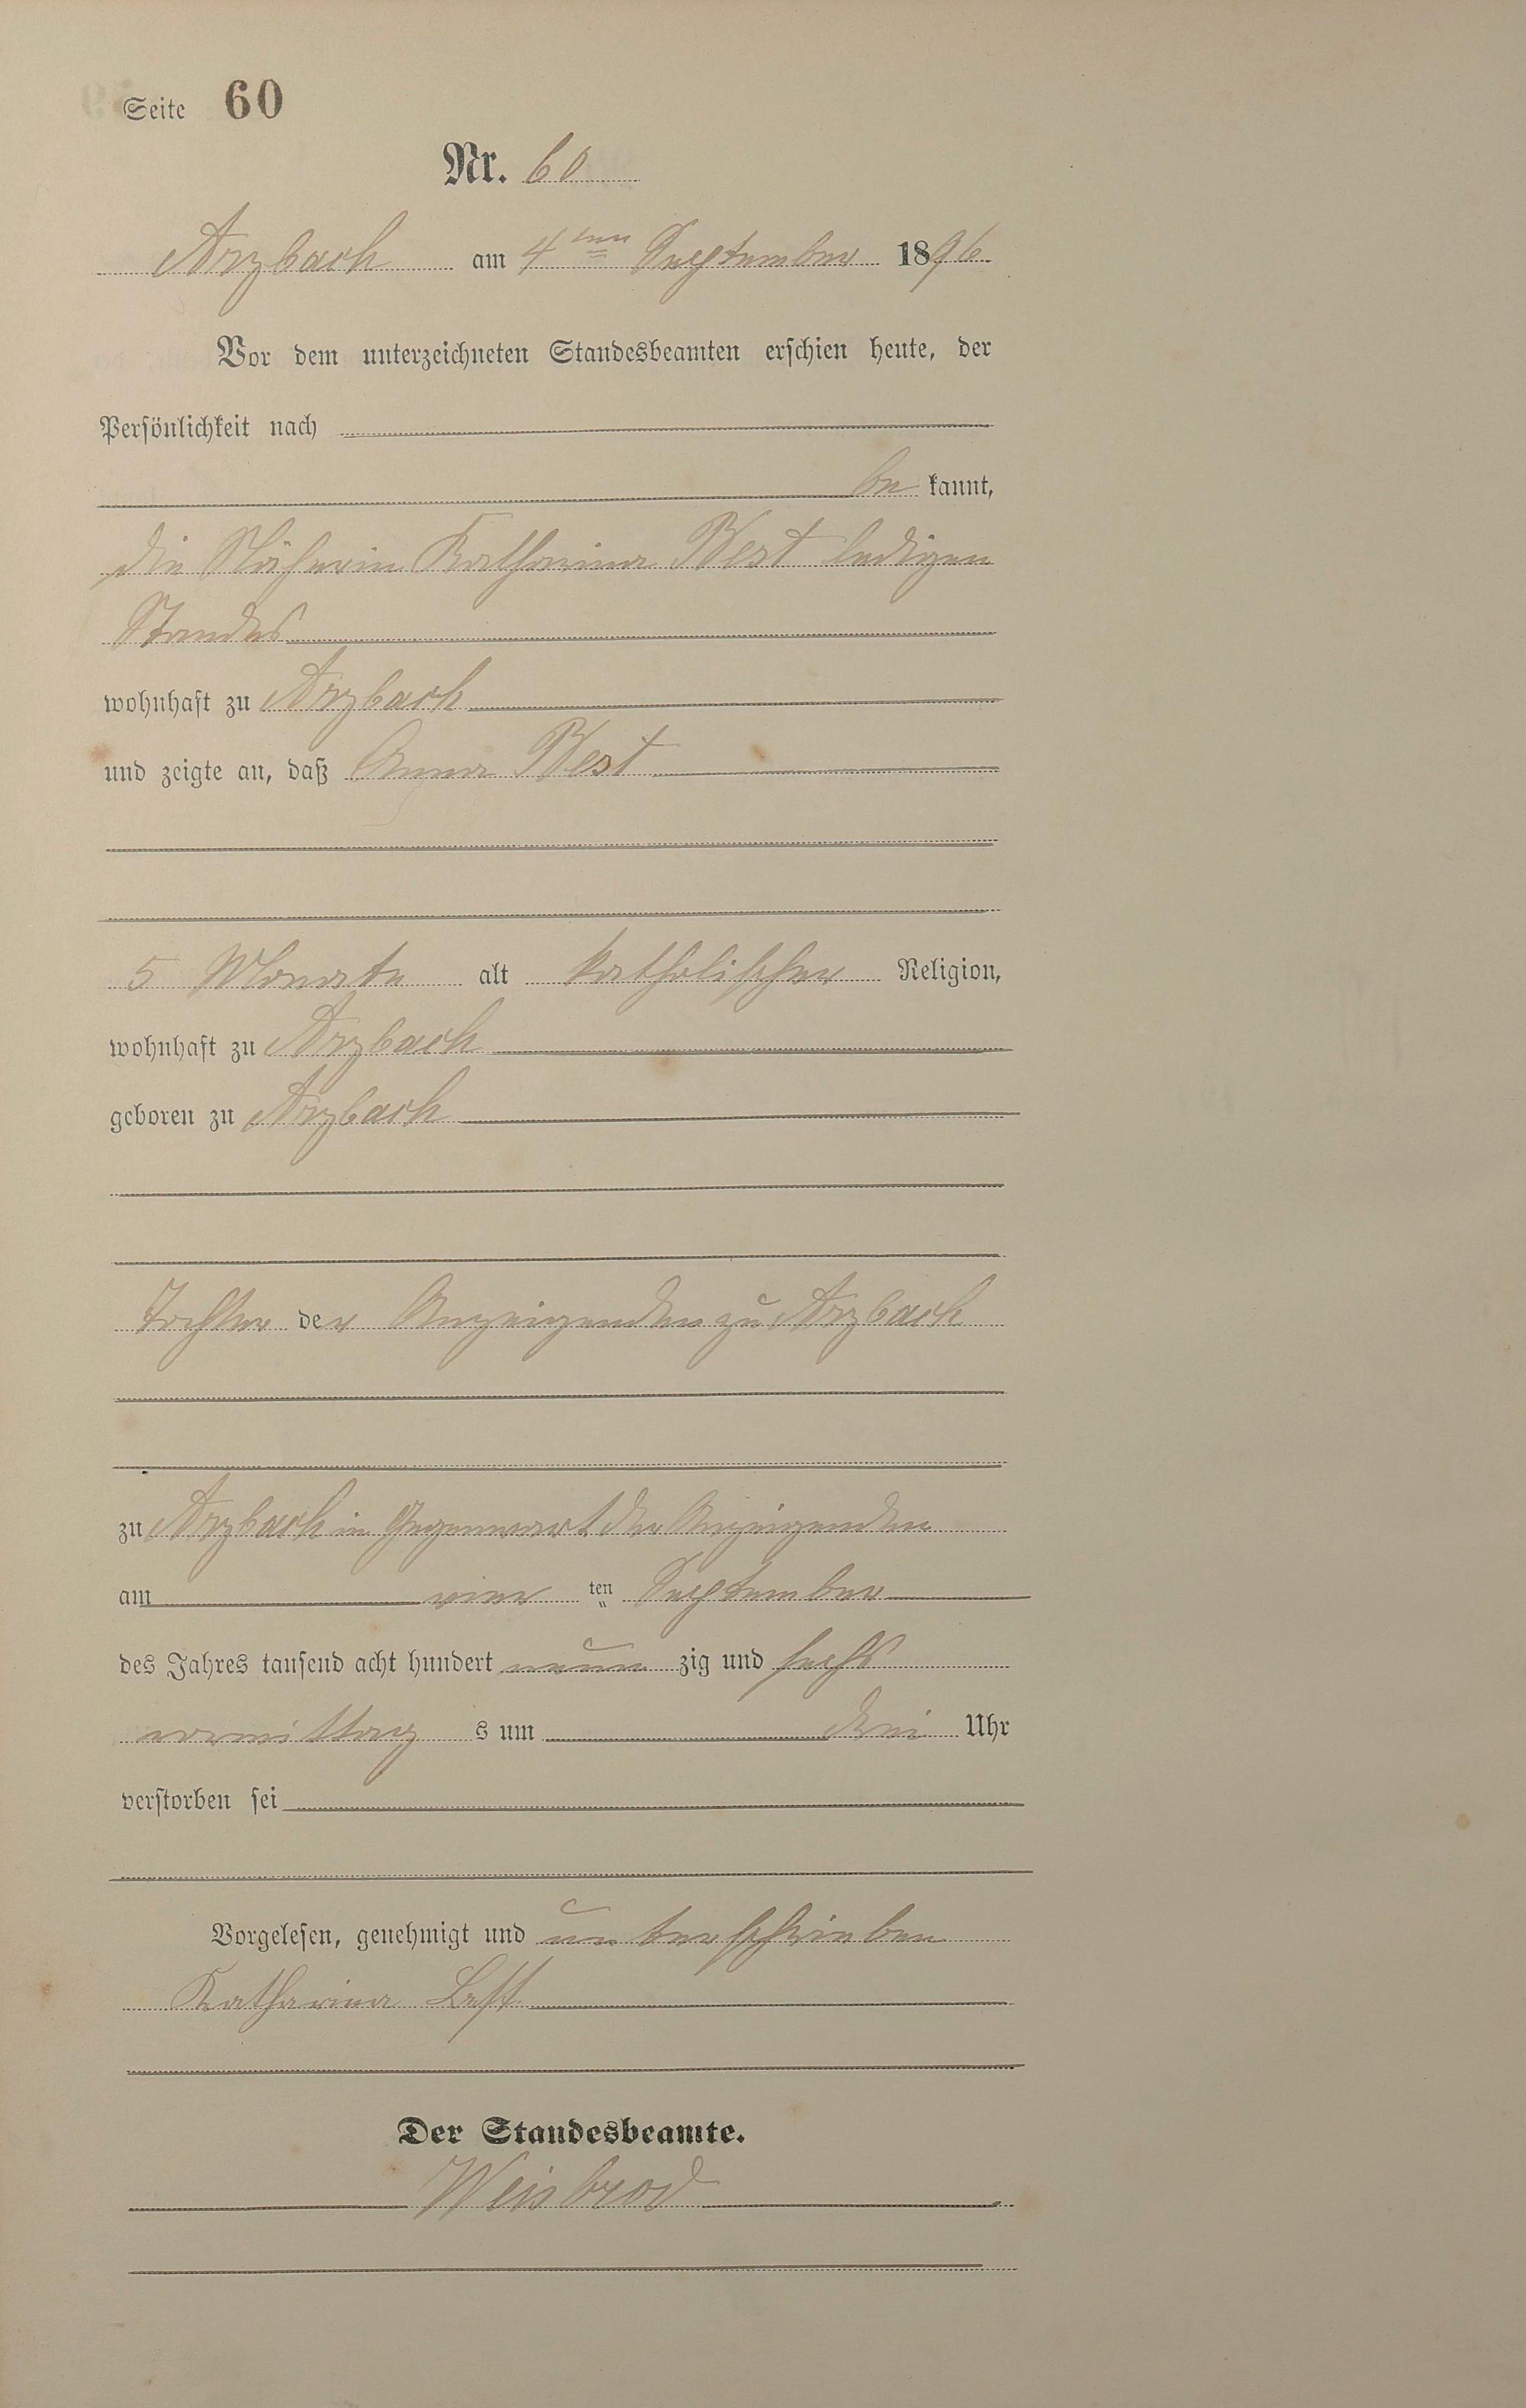 Seite 60
Nr. 60
Arzbach am 4ten September 1896
Vor dem unterzeichneten Standesbeamten erschien heute, der
Persönlichkeit nach
be kannt,
die Näherin Katharina Best ledigen
Standes
wohnhaft zu Arzbach
und zeigte an, daß Anna Best
5 Monate alt katholischer Religion,
wohnhaft zu Arzbach
geboren zu Arzbach
Tochter der Anzeigenden zu Arzbach
zu Arzbach in Gegenwart der Anzeigenden
am vier ten September
des Jahres tausend acht hundert neun zig und sechs
vormittag s um drei Uhr
verstorben sei
Vorgelesen, genehmigt und unterschrieben
Katharina Best
Der Standesbeamte.
Weisbrod